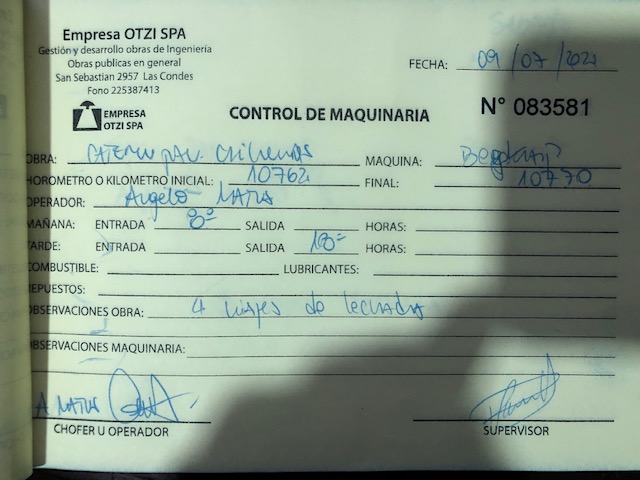 Empresa OTZI SPA
Gestión y desarrollo obras de Ingeniería
Obras publicas en general
San Sebastian 2957 Las Condes
Fono 225387413
EMPRESA
OTZI SPA
FECHA: 09/07/2021
CONTROL DE MAQUINARIA
N° 083581
OBRA: MAQUINA:
HOROMETRO O KILOMETRO INICIAL: 10762 FINAL: 10770
OPERADOR: Angelo MATA
MAÑANA: ENTRADA 8° SALIDA HORAS:
TARDE: ENTRADA SALIDA 18°= HORAS:
COMBUSTIBLE: LUBRICANTES:
REPUESTOS:
OBSERVACIONES OBRA: 4 viajes de lechada
OBSERVACIONES MAQUINARIA:
A MATA
CHOFER U OPERADOR
SUPERVISOR